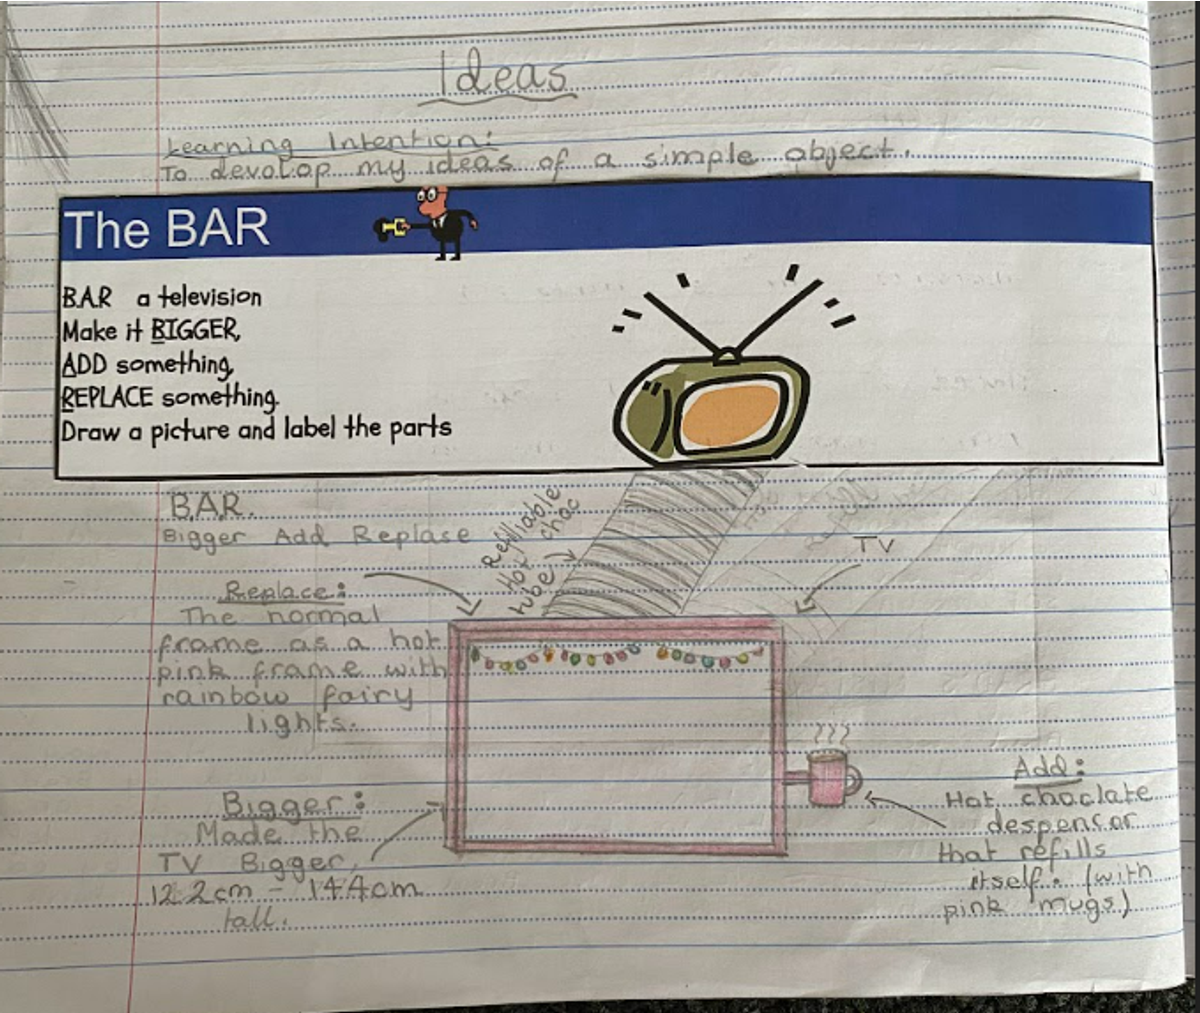 Ideas
Learning Intention:
To devolop my ideas of a simple object.
The BAR
B.A.R a television
Make it BIGGER,
ADD something,
REPLACE something.
Draw a picture and label the parts
B.A.R.
Bigger Add Replase
Refilliable
hot choc
tube
TV
Replace:
The normal
frame as a hot
pink frame with
rainbow fairy
lights.
Bigger:
Made the
TV Bigger.
122cm - 144cm
tall.
Add:
Hot choclate
despencor
that refills
itself. (with
pink mugs)